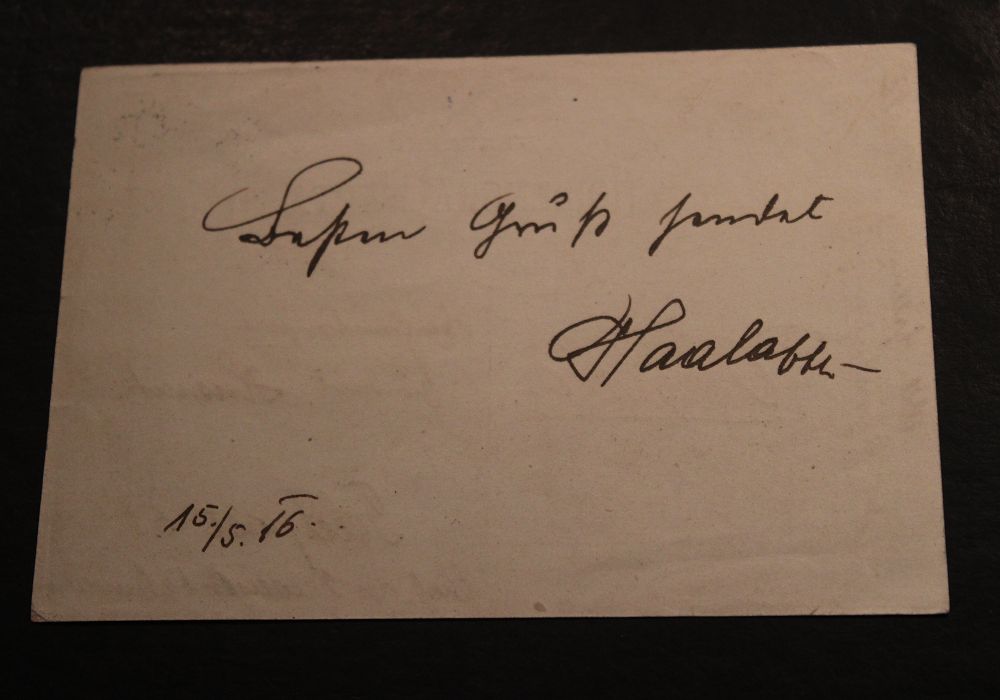 Besten Gruß sendet
15./5. 16.